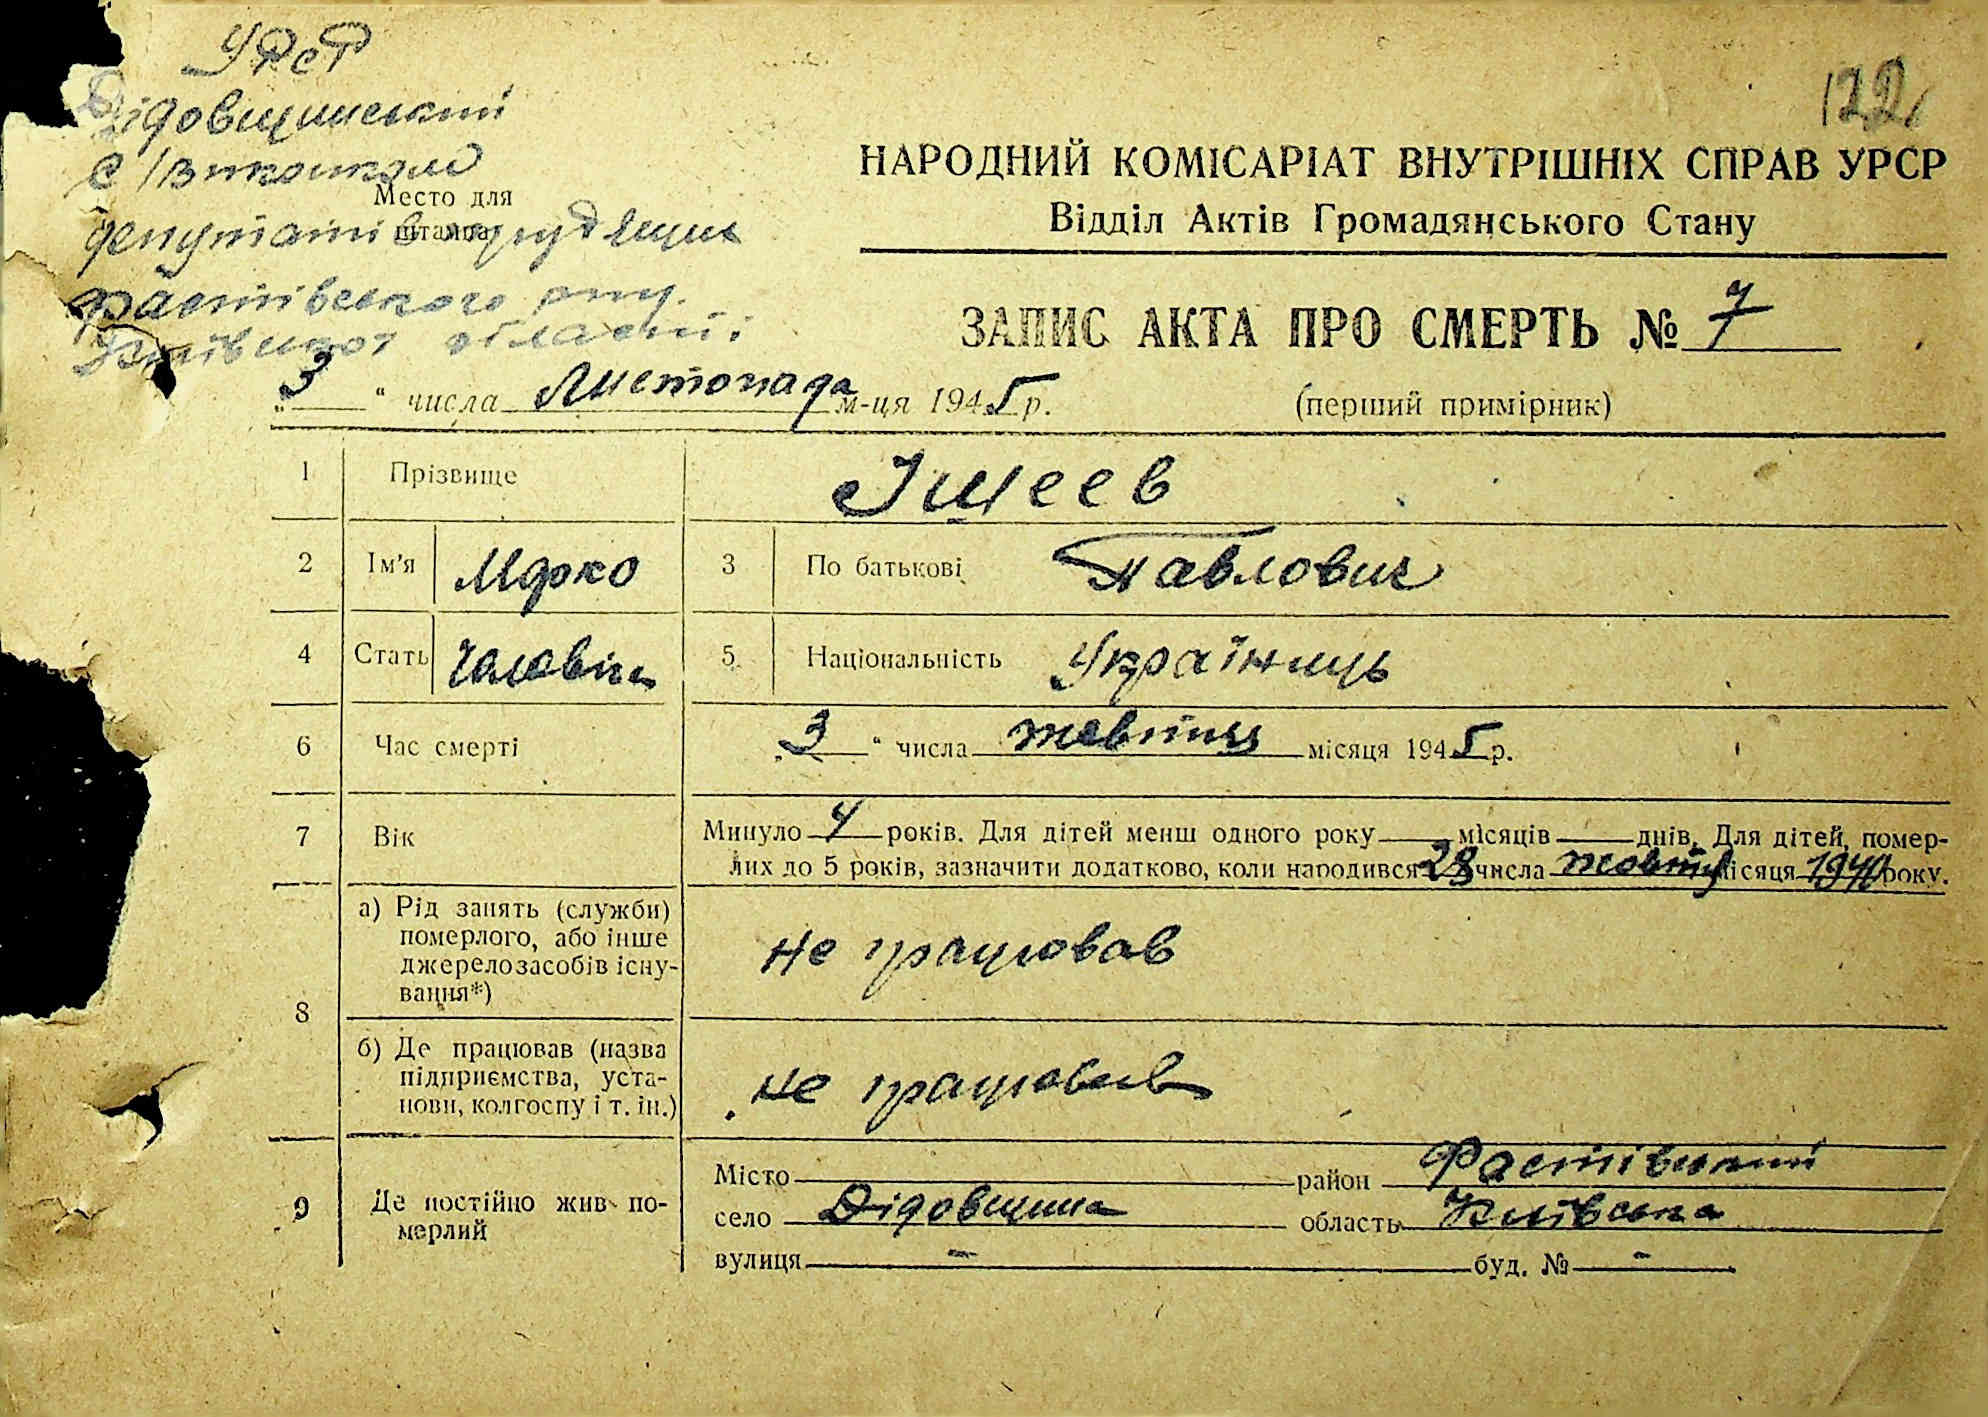 УРСР
Дідовщинський
с/виконком
Место для
штампа
депутатів трудящих
Фастівського р-ну.
Київської області:
122
НАРОДНИЙ КОМІСАРІАТ ВНУТРІШНІХ СПРАВ УРСР
Відділ Актів Громадянського Стану
ЗАПИС АКТА ПРО СМЕРТЬ № 7
„3“ числа Листопада м-ця 1945 р.
(перший примірник)
1 Прізвище Ищеев
2 Ім'я Марко 3 По батькові Павлович
4 Стать Чоловіч 5 Національність Українець
6 Час смерті „3“ числа жовтня місяця 1945 р.
7 Вік Минуло 4 років. Для дітей менш одного року місяців днів. Для дітей, помер-
лих до 5 років, зазначити додатково, коли народився 28 числа жовтня місяця 1940 року.
8 а) Рід занять (служби)
померлого, або інше
джерело засобів існу-
вання*)
не працював
б) Де працював (назва
підприємства, уста-
нови, колгоспу і т. ін.)
не працював
9 Де постійно жив по-
мерлий
Місто район Фастівський
село Дідовщина область Київська
вулиця – буд. № –